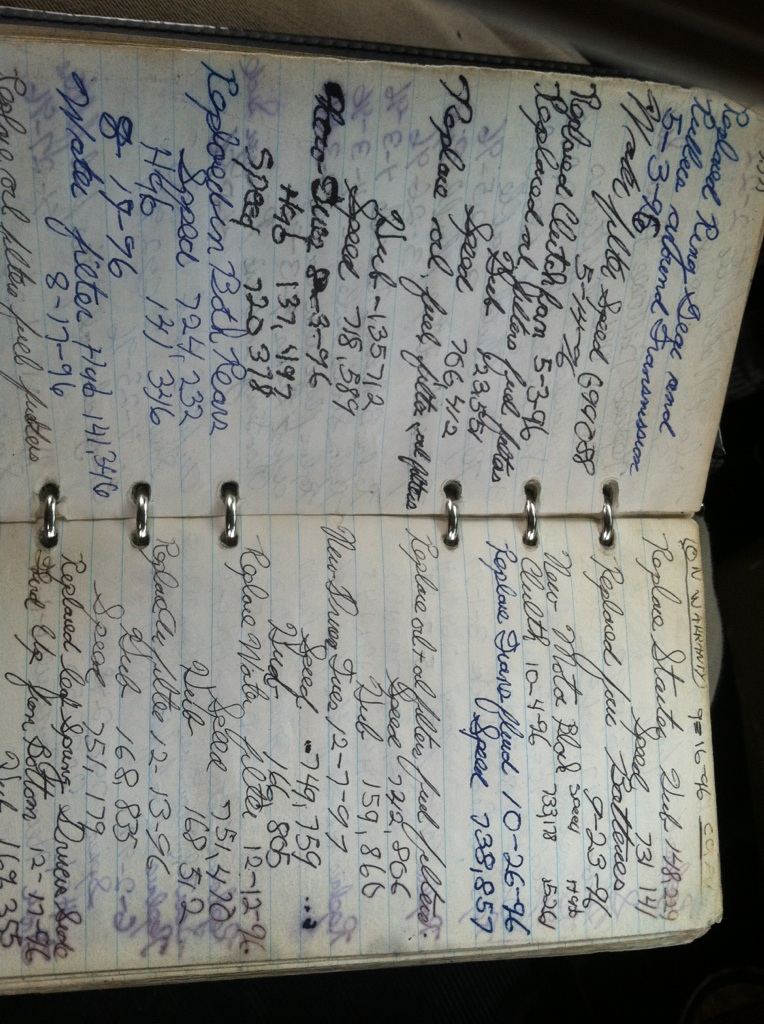 Replaced Ring Gear and
Rubber around Transmission
5-3-96
Water filter Speed 694058
5-14-9
Replaced Clutch fan 5-3-96
Replaced oil filters fuel filters
Hub 123,551
Speed 706,412
Replace oil, fuel filter, oil filters
Hub - 135712
Speed 718,589
New Tires 8-3-96
Hub 137,497
Speed 720,378
Replaced in Both Rears
Speed 724,232
Hub 141,346
8-17-96
Water filter Hub 141,346
8-17-96
Replace oil filters fuel filters
ON WARRANTY 9-16-96
Replace Starter Hub 148,259
Speed 731,141
Replaced four Batteries
9-23-96
New Motor Block Speed Hub
Clutch 10-4-96 733,178
Replace Trans fluid 10-26-96
Speed 738,857
Replace oil-oil filter fuel filters.
Speed 742,806
Hub 159,866
New Drive Tires 12-7-97
Speed 749,759
Hub 166,805
Replace Water filter 12-12-96
Speed 751,470
Hub 168,512
Replace Air filter 12-13-96
Hub 168,835
Speed 751,179
Replaced Leaf Spring Drivers Side
Third Up from Bottom 12-17-96
Hub 169,355